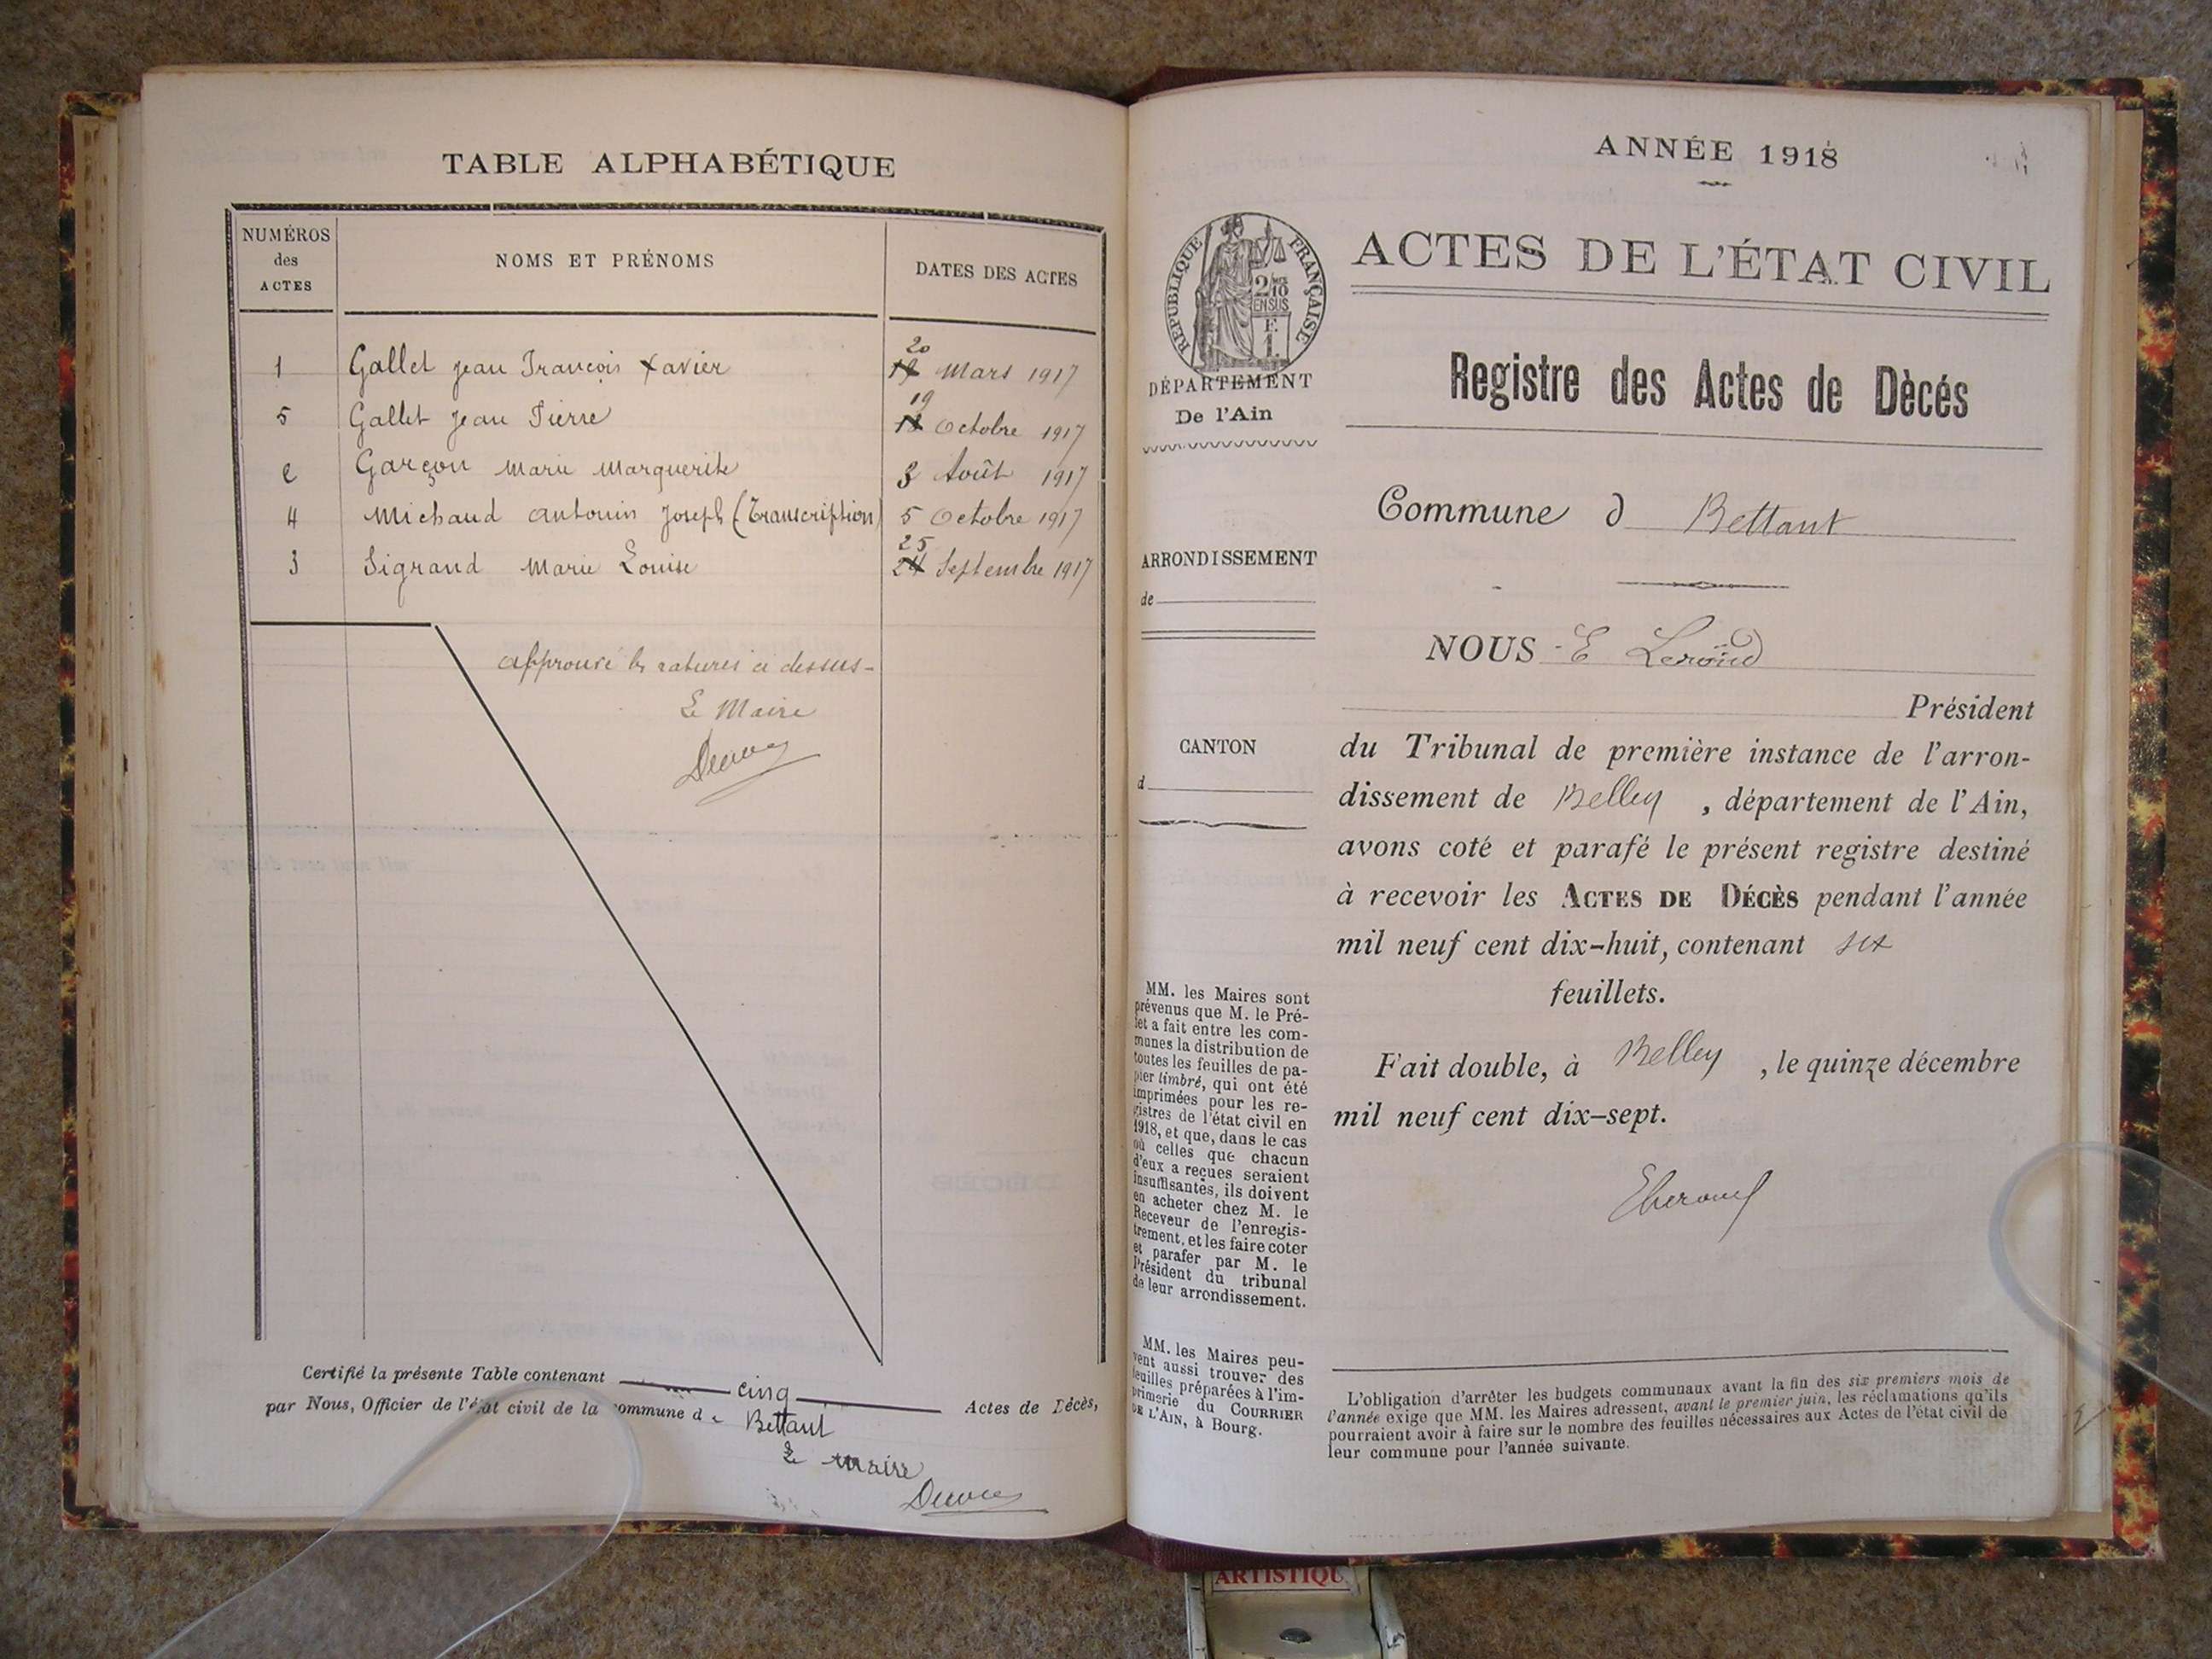 TABLE ALPHABÉTIQUE
NUMÉROS
des
ACTES
NOMS ET PRÉNOMS
DATES DES ACTES
1 Gallet Jean François Xavier 20 Mars 1917
5 Gallet Jean Pierre 19 Octobre 1917
2 Garçon Marie Marguerite 3 Août 1917
4 Michaud Antonin Joseph (Transcription) 5 Octobre 1917
3 Sigrand Marie Louise 25 Septembre 1917
approuvé les ratures ci dessus
Le Maire
Certifié la présente Table contenant cinq Actes de Décès,
par Nous, Officier de l'état civil de la commune de Bettant
Le maire
ANNÉE 1918
RÉPUBLIQUE FRANÇAISE
2/10
EN SUS
F.
1.
DÉPARTEMENT
De l'Ain
ARRONDISSEMENT
de
CANTON
d
MM. les Maires sont
prévenus que M. le Pré-
fet a fait entre les com-
munes la distribution de
toutes les feuilles de pa-
pier timbré, qui ont été
imprimées pour les re-
gistres de l'état civil en
1918, et que, dans le cas
où celles que chacun
d'eux a reçues seraient
insuffisantes, ils doivent
en acheter chez M. le
Receveur de l'enregis-
trement, et les faire coter
et parafer par M. le
Président du tribunal
de leur arrondissement.
MM. les Maires peu-
vent aussi trouver des
feuilles préparées à l'im-
primerie du COURRIER
DE L'AIN, à Bourg.
ACTES DE L'ÉTAT CIVIL
Registre des Actes de Dècés
Commune d Bettant
NOUS E
Président
du Tribunal de première instance de l'arron-
dissement de Belley, département de l'Ain,
avons coté et parafé le présent registre destiné
à recevoir les ACTES DE DÉCÈS pendant l'année
mil neuf cent dix-huit, contenant six
feuillets.
Fait double, à Belley, le quinze décembre
mil neuf cent dix-sept.
L'obligation d'arrêter les budgets communaux avant la fin des six premiers mois de
l'année exige que MM. les Maires adressent, avant le premier juin, les réclamations qu'ils
pourraient avoir à faire sur le nombre des feuilles nécessaires aux Actes de l'état civil de
leur commune pour l'année suivante.
ARTISTIQU